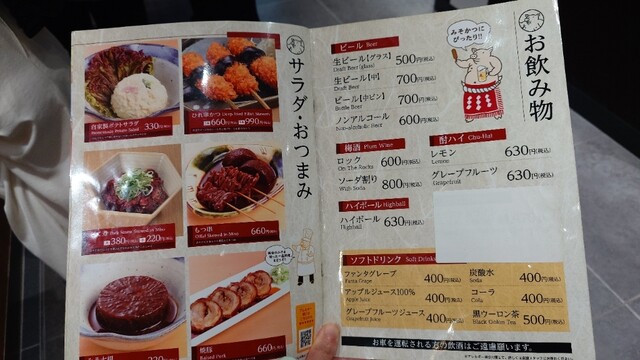 サラダ・おつまみ
自家製ポテトサラダ
Homemade Potato Salad
330円
ひれ串かつ Deep Fried Fillet Skewers
660円
990円
380円
220円
もつ串
Offal Skewered in Miso
660円
焼豚
Roasted Pork
660円
お飲み物
みそかつに
ぴったり!!
ビール Beer
生ビール【グラス】 500円(税込)
Draft Beer (glass)
生ビール【中】 700円(税込)
Draft Beer
ビール【中ビン】 700円(税込)
Bottle Beer
ノンアルコール 600円(税込)
Non-alcoholic Beer
梅酒 Plum Wine
ロック 600円(税込)
On The Rocks
ソーダ割り 800円(税込)
With Soda
ハイボール Highball
ハイボール 630円(税込)
Highball
酎ハイ Chu-Hai
レモン 630円(税込)
Lemon
グレープフルーツ 630円(税込)
Grapefruit
ソフトドリンク Soft Drink
ファンタグレープ 400円(税込)
Fanta Grape
アップルジュース100% 400円(税込)
Apple Juice
グレープフルーツジュース 400円(税込)
Grapefruit Juice
炭酸水 400円(税込)
Soda
コーラ 400円(税込)
Cola
黒ウーロン茶 500円(税込)
Black Oolong Tea
お車を運転される方の飲酒はご遠慮願います。